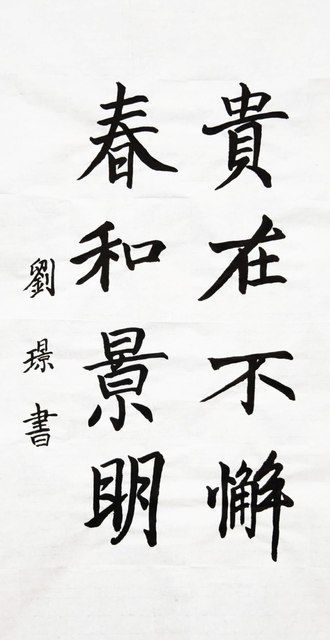 貴在不懈
春和景明
劉璟書